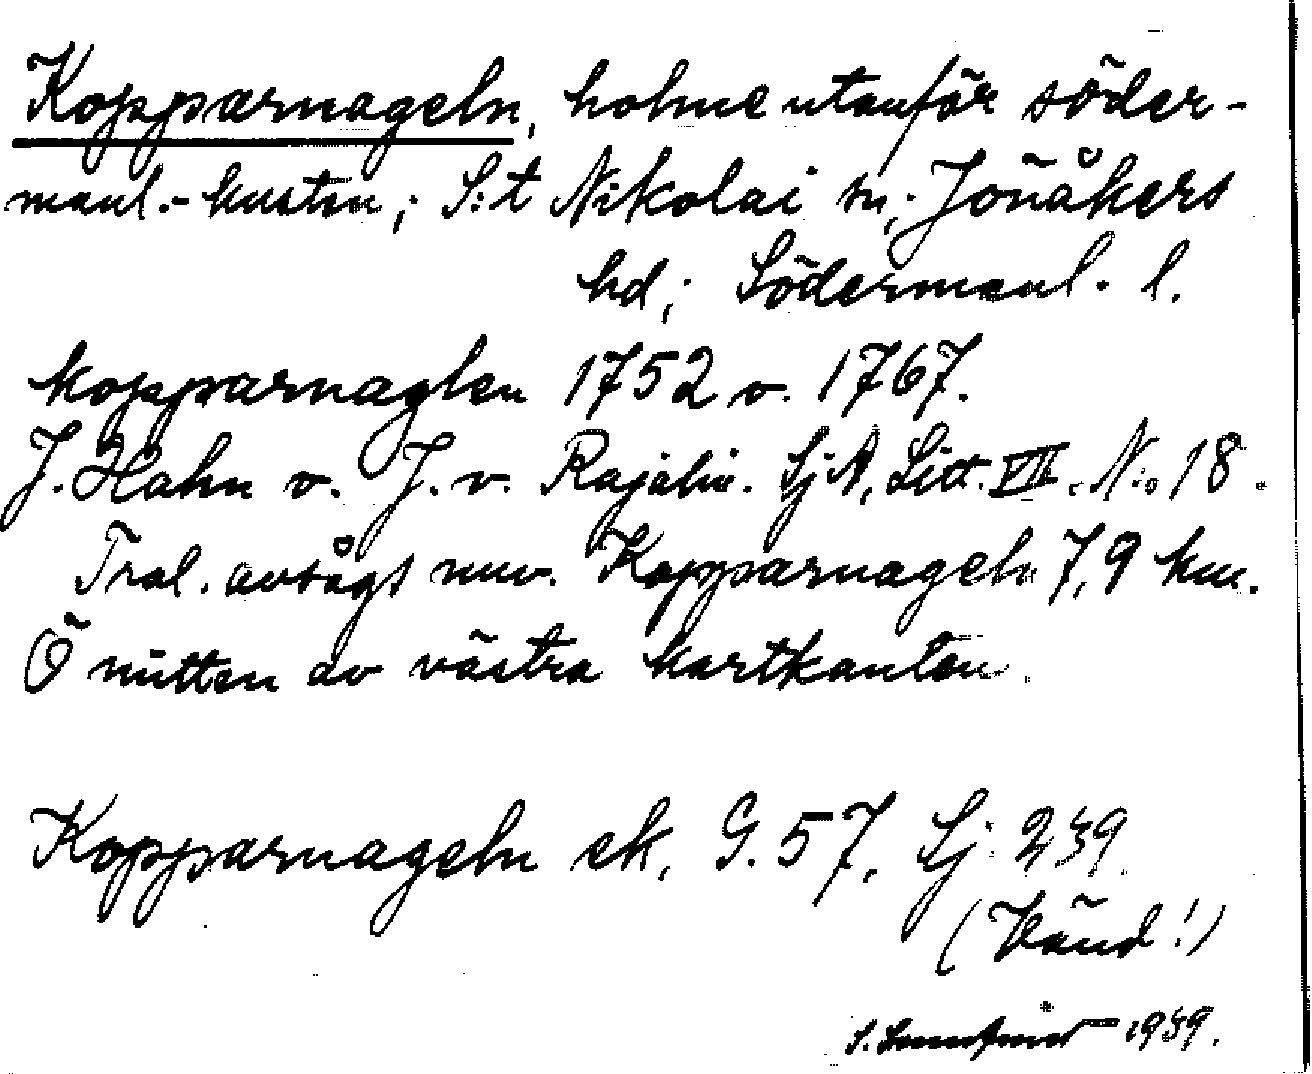 Kopparnageln, holme utanför söder-
manl.-kusten; S:t Nikolai sn; Jönåkers
hd; Södermanl. l.
Kopparnaglen 1752 o. 1767.
J. Hahn o. J. v. Rajalin. SjA, Litt. VII. N:o 18.
Trol. avsågs nuv. Kopparnageln 7,9 km.
Ö mitten av västra kartkanten.
Kopparnageln ek. G. 57, Sj. 239.
(Vänd!)
S. 1939.